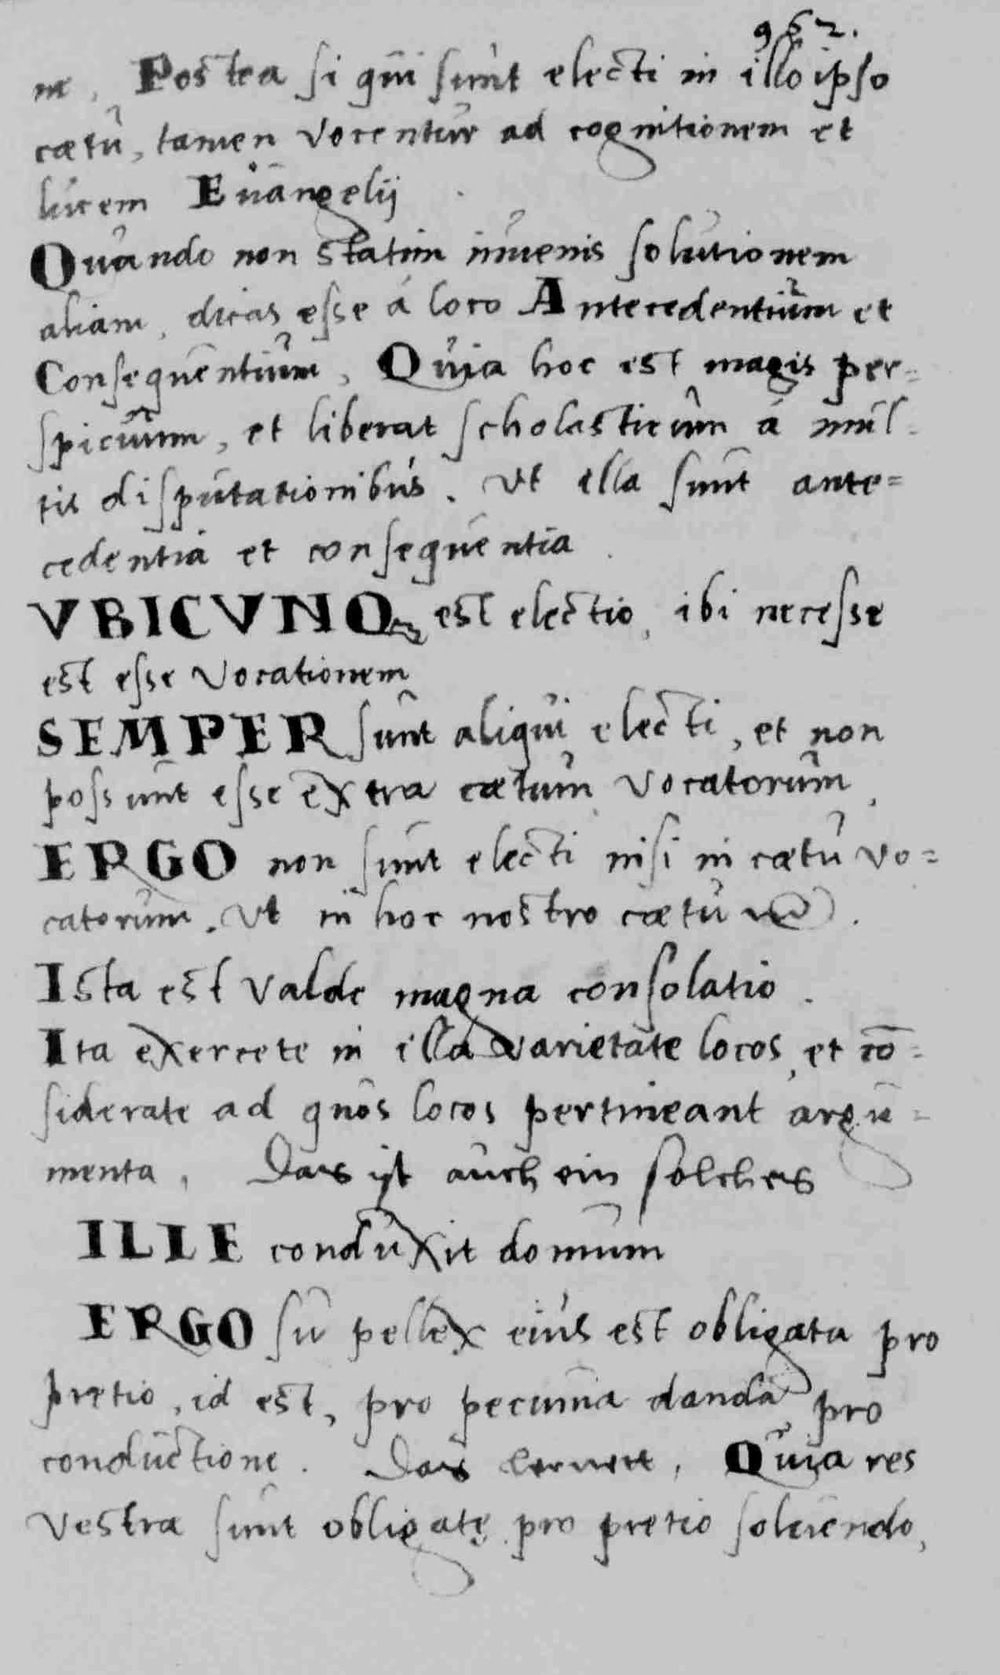 952.
ne, Postea si qui sunt electi in illo ipso
cœtu, tamen vocentur ad cognitionem et
lucem Euangelij
Quando non statim inuenis solutionem
aliam, dicas esse á loco Antecedentium et
Consequentium, Quia hoc est magis per=
spicuum, et liberat scholasticum á mul=
tis disputationibus. Vt illa sunt ante=
cedentia et consequentia.
VBICVNQ est electio, ibi necesse
est esse Vocationem
SEMPER sunt aliqui electi, et non
possunt esse extra cœtum Vocatorum,
ERGO non sunt electi nisi in cœtu Vo=
catorum. Vt in hoc nostro cœtu.
Ista est valde magna consolatio.
Ita exercete in illa varietate locos, et cō=
siderate ad quos locos pertineant argu=
menta, Das ist auch ein solches
ILLE conduxit domum
ERGO supellex eius est obligata pro
pretio, id est, pro pecunia danda pro
conductione. Das lernett, Quia res
Vestræ sunt obligatę pro pretio soluendo,